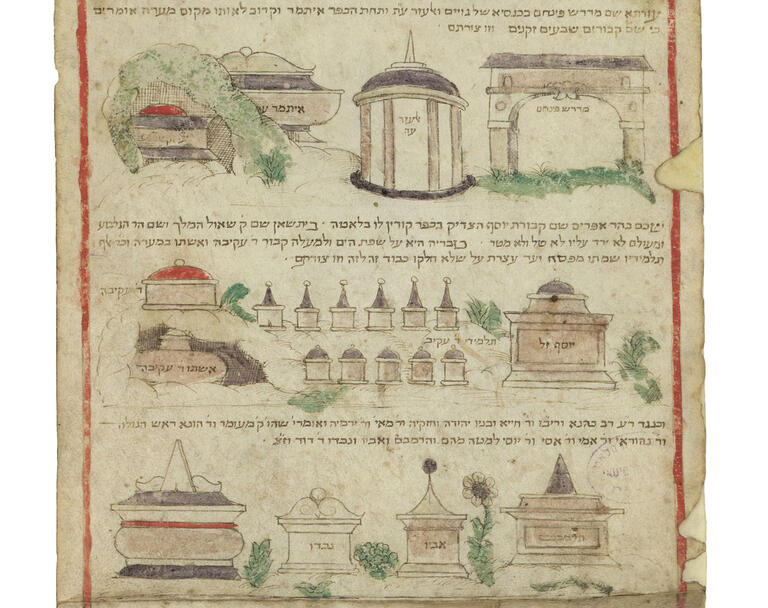 שם מדרש פינחם בכנסיא של גויים ותחת הכפר איתמר וקרוב לאותו מקום מערה אומרים
כי שם קבורים שבעים זקנים וזו צורתם
איתמר
מדרש פינחם
שכם בהר אפרים שם קבורת יוסף הצדיק בכפר קורין לו בלאטה בית שאן שם ק שאול המלך ושם הר הגלבוע
ומעולם לא ירד עליו לא טל ולא מטר טבריה היא על שפת הים ולמעלה קבור ר עקיבה ואשתו במערה
תלמידיו שמתו מפסח ועד עצרת על שלא חלקו כבוד זה לזה וזו צורתם
ר עקיבה
יוסף זל
תלמידי ר עקיב
אשתו ר עקיבה
וכנגד רע רב כהנא ור חייא ובניו יהודה וחזקיה ור ירמיה ואומרי ור הונא ראש הגולה
ור אמי ור אסי ור יוסי למטה מהם והרמבם ואביו ונכדו ר דוד
אביו
נכדו